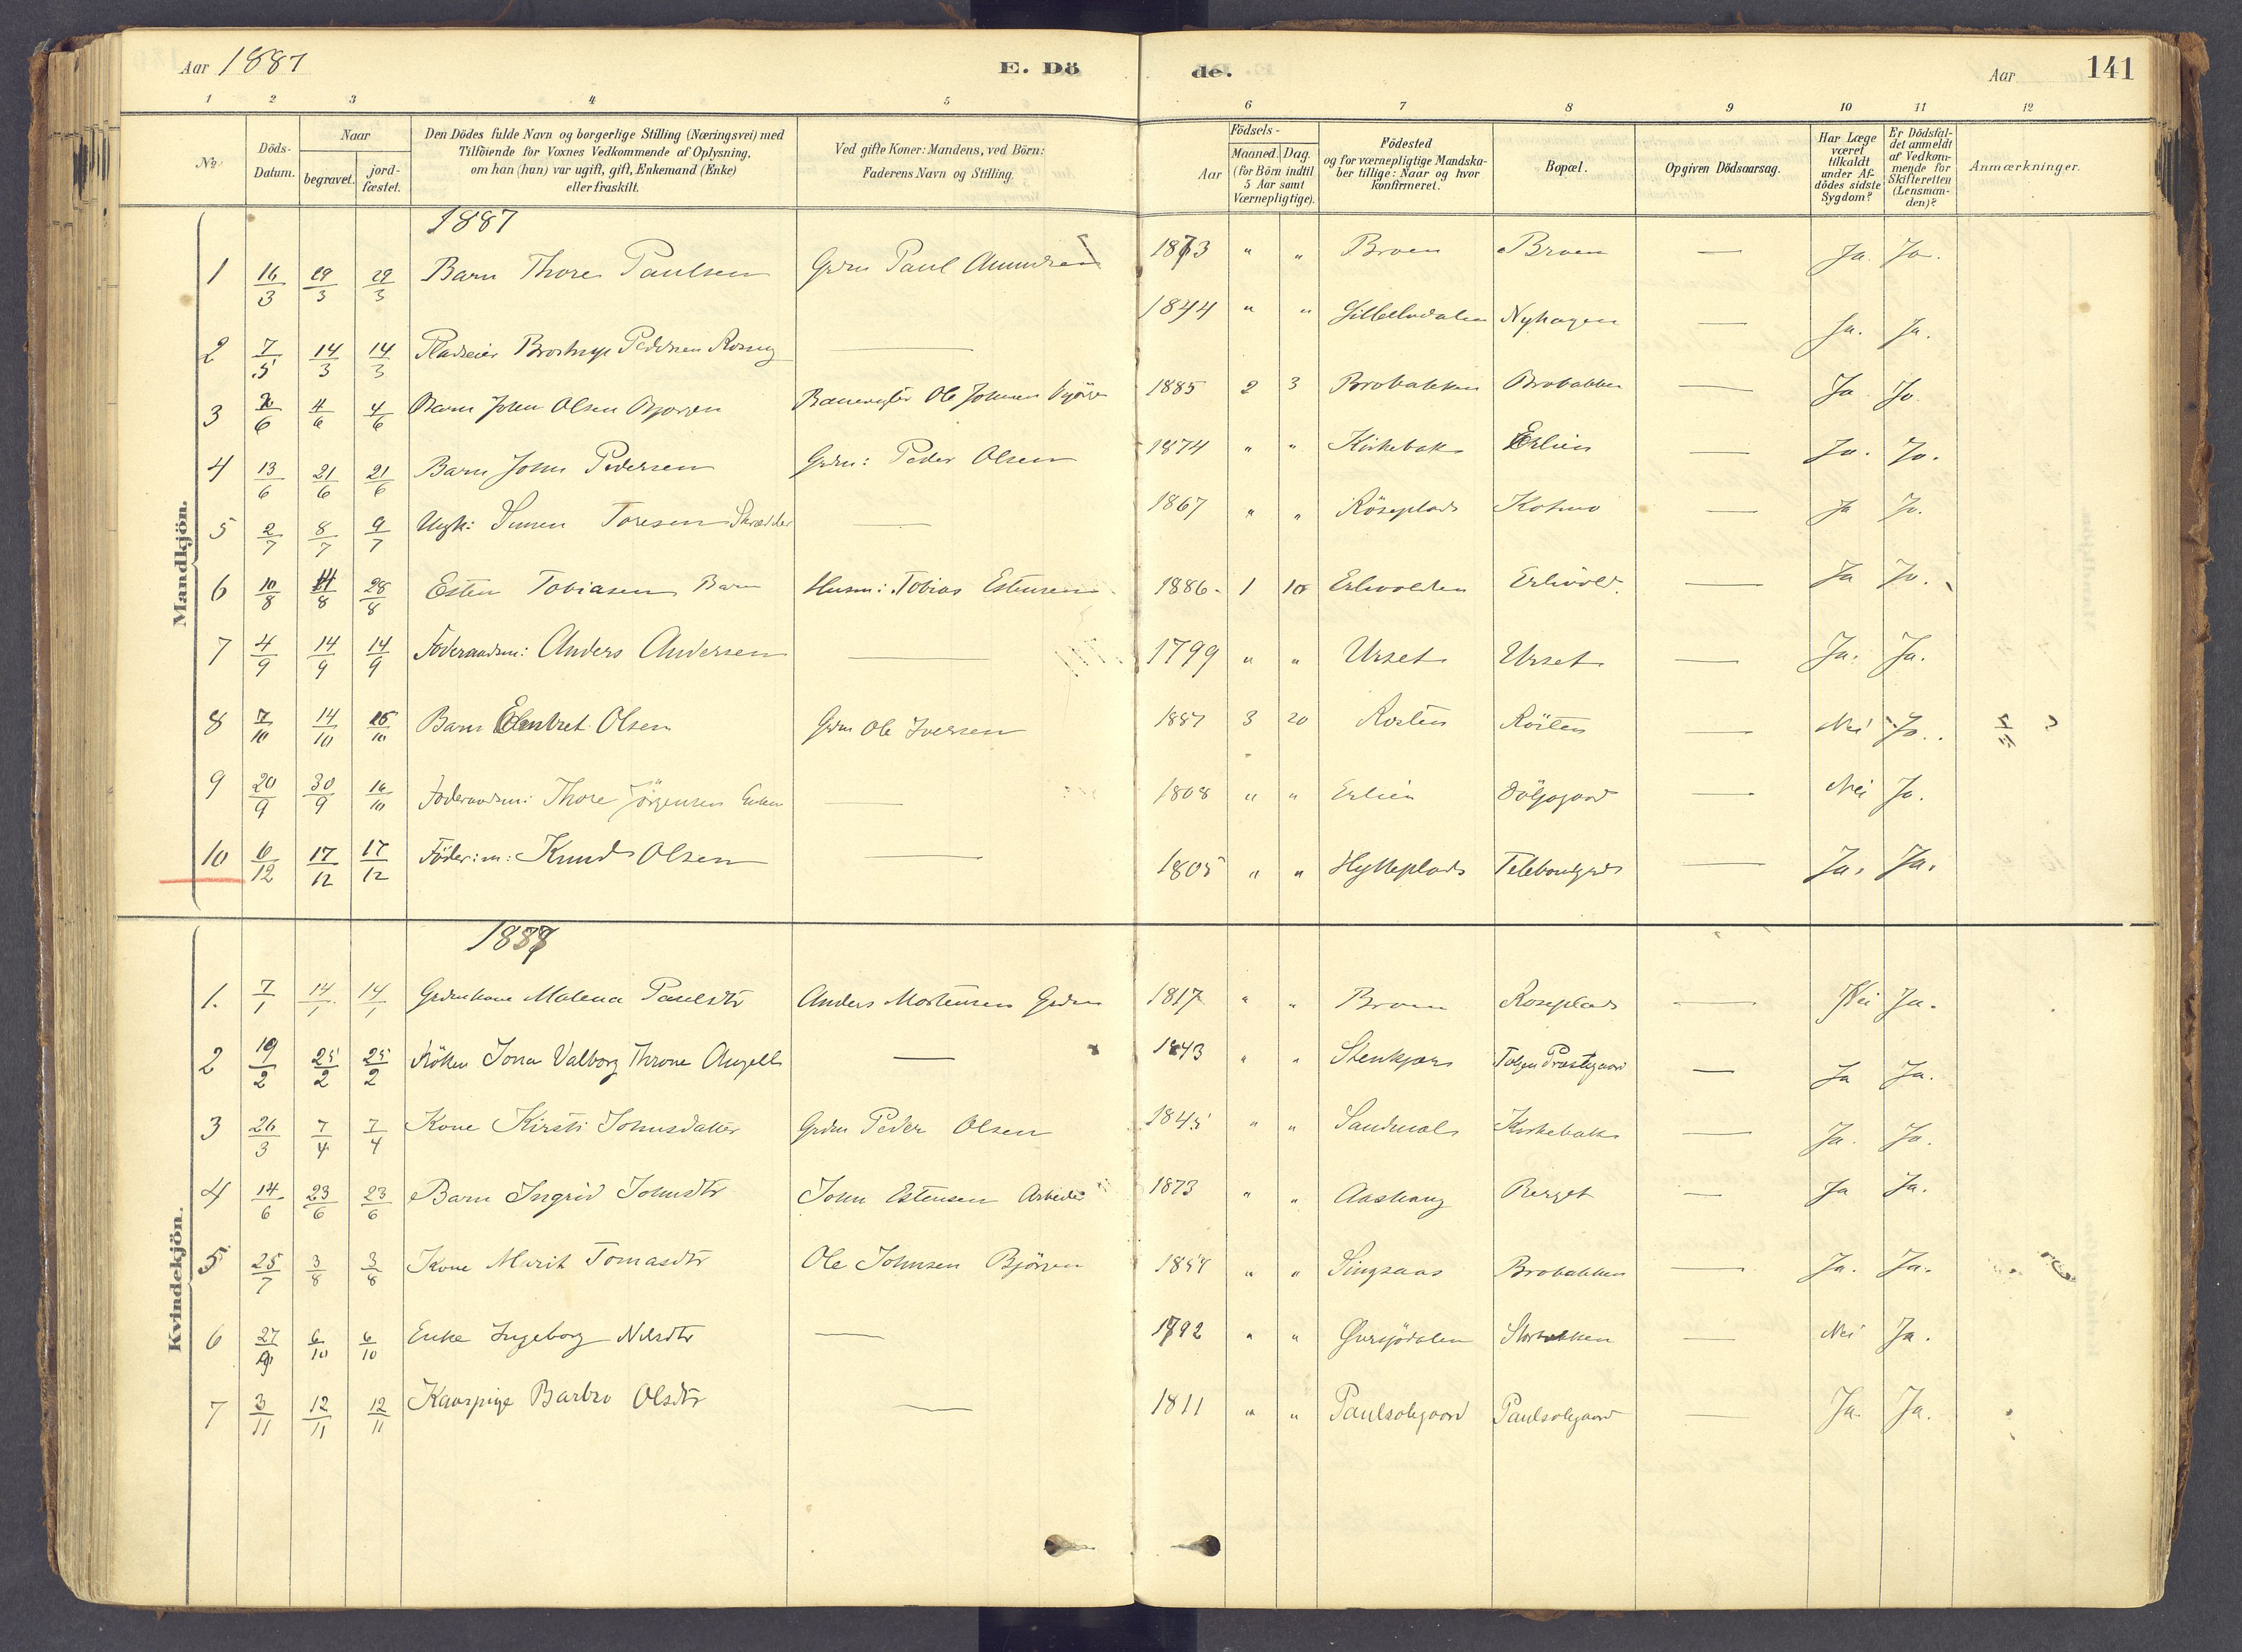 Aar 1887
E. Döde.
Aar
141
1 2 3 4 5 6 7 8 9 10 11 12
No.
Döds-Datum.
Naar
begravet. jordfæstet.
Den Dödes fulde Navn og borgerlige Stilling (Næringsvei) med
Tilföiende for Voxnes Vedkommende af Oplysning,
om han (hun) var ugift, gift, Enkemand (Enke)
eller fraskilt.
Ved gifte Koner: Mandens, ved Börn:
Faderens Navn og Stilling.
Födsels-
Aar
Maaned. Dag.
(for Börn indtil
5 Aar samt
Værnepligtige).
Födested
og for værnepligtige Mandskaber tillige: Naar og hvor
konfirmeret.
Bopæl.
Opgiven Dödsaarsag.
Har Læge
været
tilkaldt
under Afdödes sidste
Sygdom?
Er Dödsfaldet anmeldt
af Vedkommende for
Skifteretten
(Lensmanden)?
Anmærkninger.
Mandkjön.
1887
1 16/3 29/3 29/3 Barn Thore Paulsen Grdm Paul Amundsen 1873 " " Broen Broen — Ja. Ja.
2 7/5 14/3 14/3 Pladseier Pedersen — 1844 " " Nyhagen — Ja. Ja.
3 2/6 4/6 4/6 Barn John Olsen Bjørgen Ole Johnsen Bjørgen 1885 2 3 Brobakken Brobakken — Ja Ja.
4 13/6 21/6 21/6 Barn John Pedersen Grdm: Peder Olsen 1874 " " Kirkebak Erlien — Ja. Ja.
5 2/7 8/7 9/7 Ungk: Simen Toresen Skrædder — 1867 " " Röseplads Kotmo — Ja Ja.
6 10/8 14/8 28/8 Esten Tobiasen Barn Husm: Tobias Estensen 1886. 1 10 Erlivolden Erlivold. — Ja Ja.
7 4/9 14/9 14/9 Föderaadsm: Anders Andersen — 1799 " " Urset Urset — Ja. Ja.
8 7/10 14/10 16/10 Barn Embret Olsen Grdm Ole Iversen 1887 3 20 Rosten Rösten — Nei Ja.
9 20/9 30/9 16/10 Föderaadsm: Thore Jörgensen — 1808 " " Erlien — Nei Ja.
10 6/12 17/12 17/12 Föder: m: Knud Olsen — 1805 " " Hytteplads — Ja. Ja.
Kvindekjön.
1887
1. 7/1 14/1 14/1 Grdmkone Malena Paulsdtr Anders Mortensen Grdm 1817 " " Broen Roseplads — Nei Ja.
2 19/2 25/2 25/2 Fröken Jona Valborg Throne Angell — 1843 " " Stenkjær Tolgen Præstegaard — Ja Ja.
3 26/3 7/4 7/4 Kone Kirsti Johnsdatter Grdm Peder Olsen 1845 " " Sandmæl Kirkebak — Ja. Ja.
4 14/6 23/6 23/6 Barn Ingrid Johnsdtr John Estensen Arbeider 1873 " " Aashaug Berget — Ja Ja.
5 25/7 3/8 3/8 Kone Marit Tomasdtr Ole Johnsen Bjørgen 1854 " " Singsaas Brobakken — Ja. Ja.
6 27/9 6/10 6/10 Enke Ingeborg Nilsdtr — 1792 " " Øversjödalen Storbakken — Nei Ja.
7 3/11 12/11 12/11 Kaarpige Barbro Olsdtr — 1811 " " Paulsolegaard Paulsolegaard — Ja. Ja.